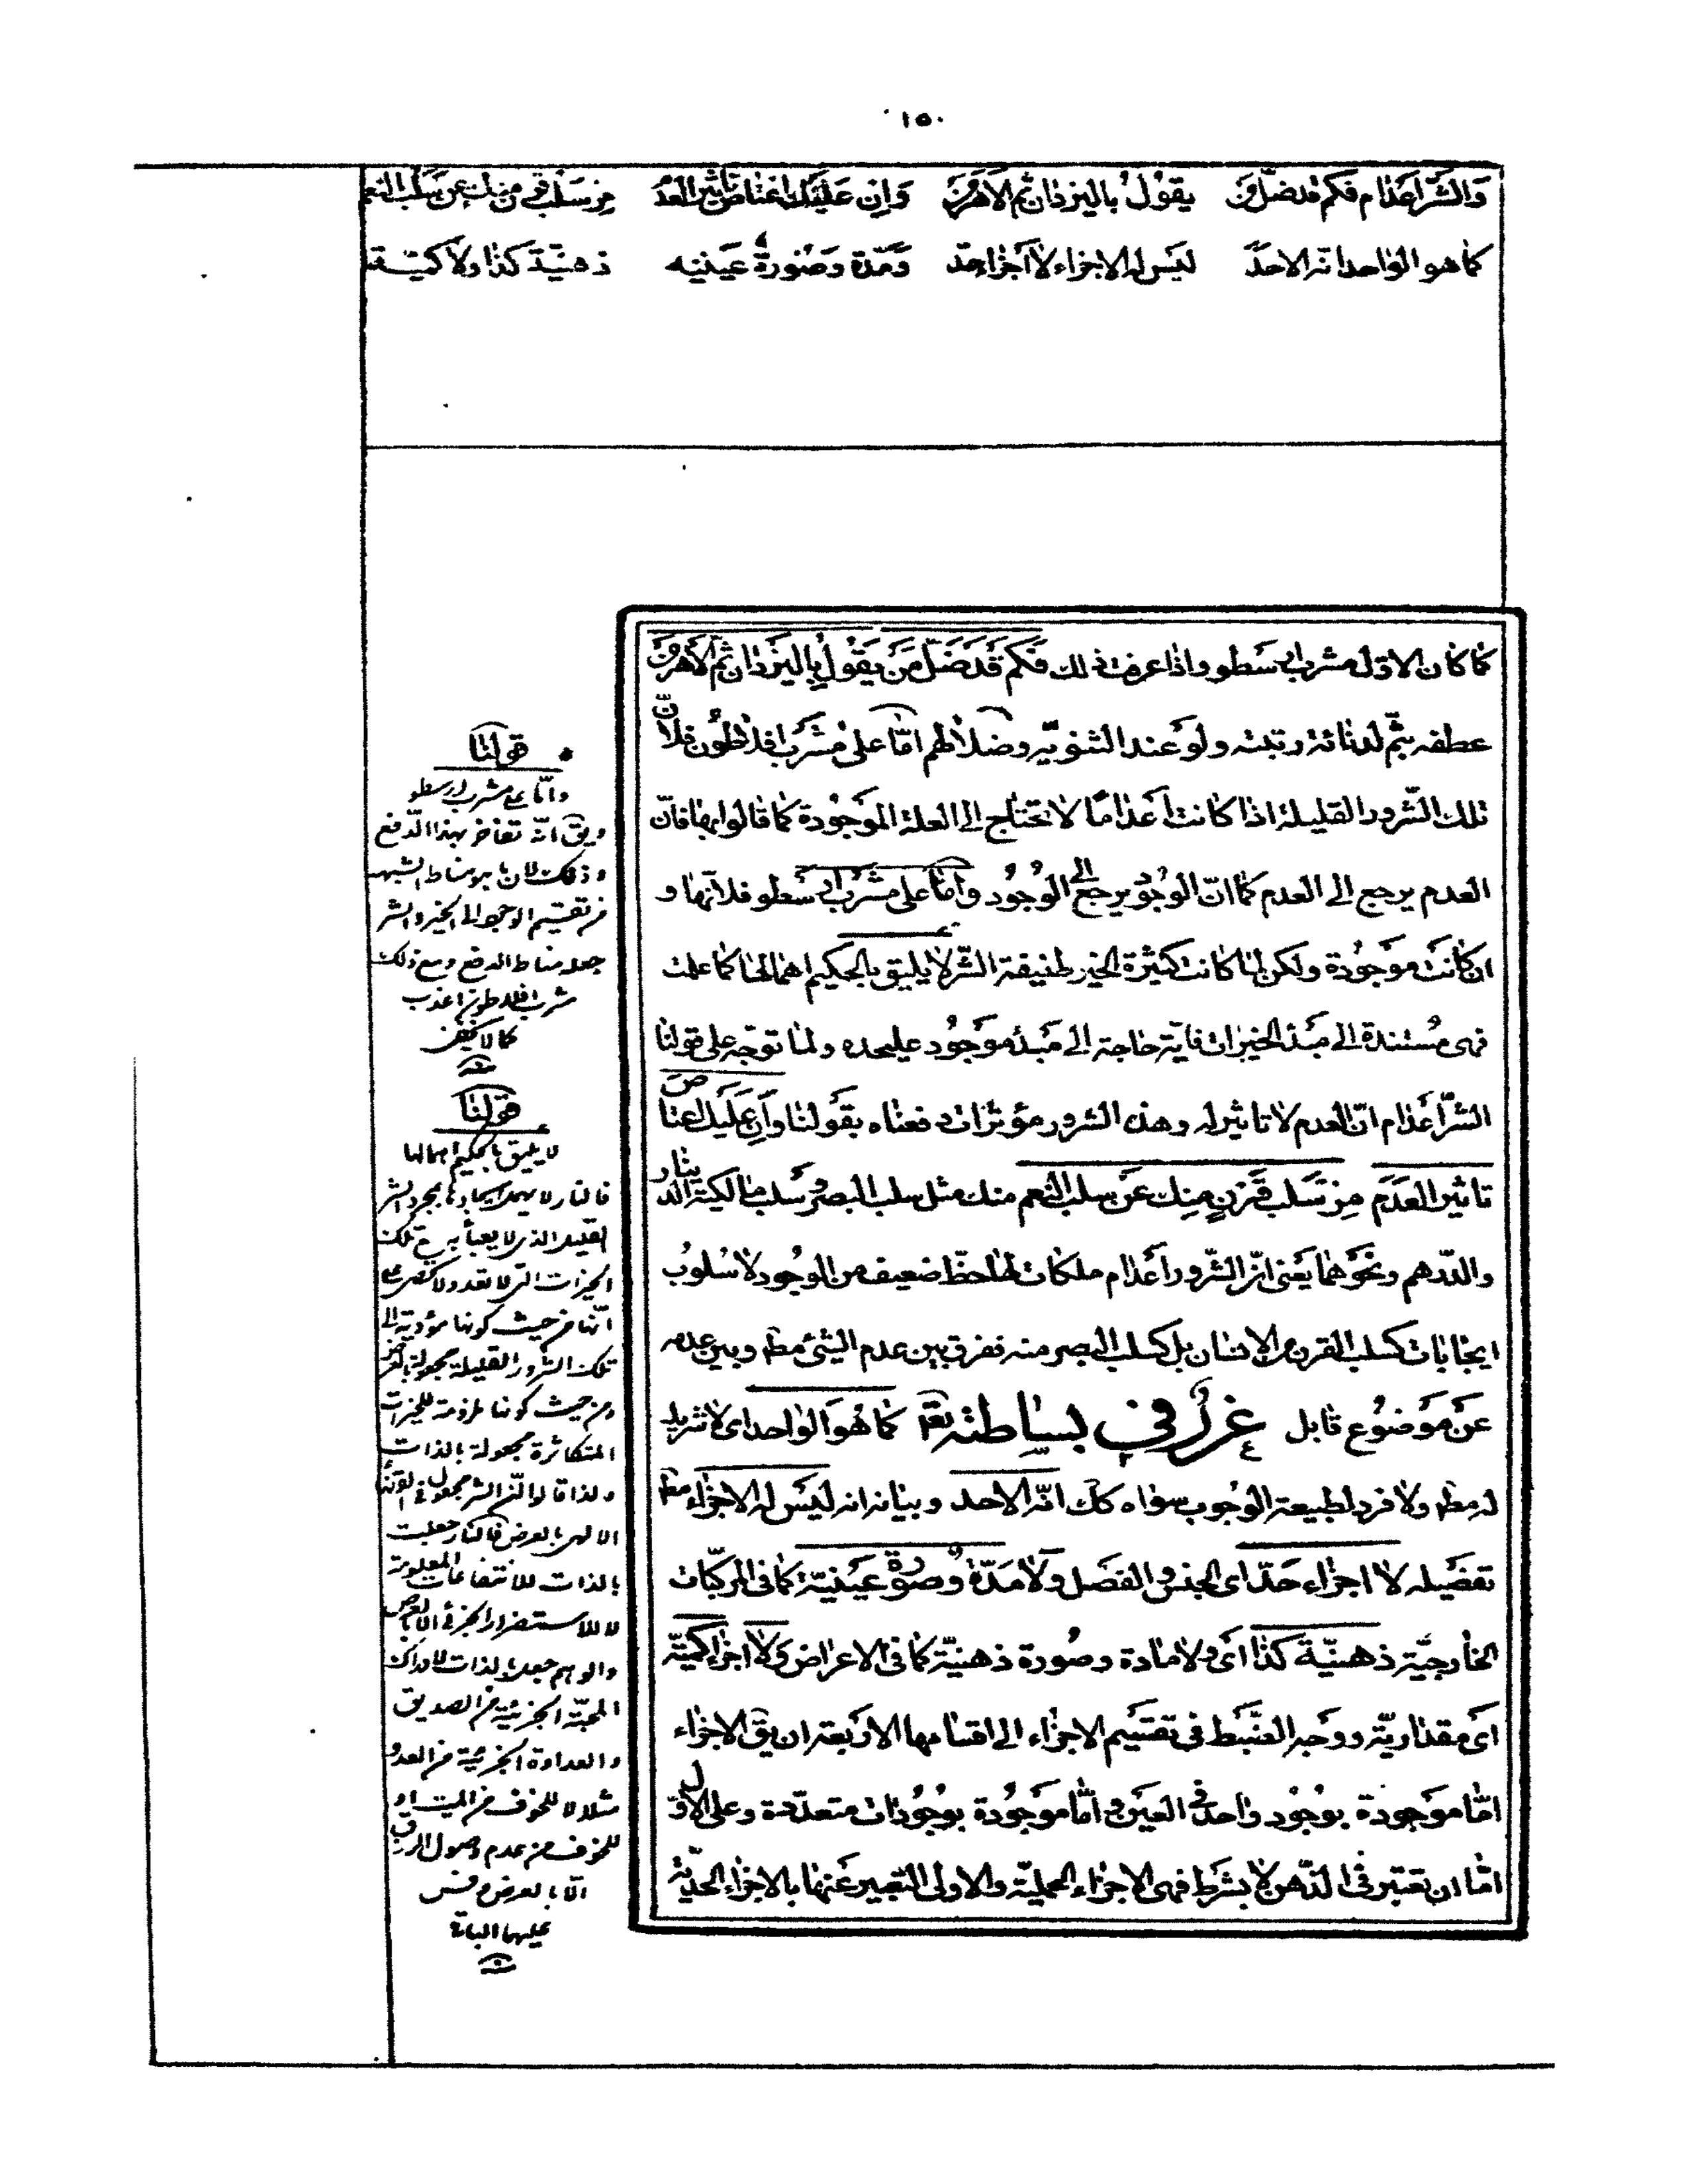 ١٥٠
والشّر اعدام فكم قد ضلّ من يقول باليزدان ثم الاهرمن وان عليك اعتاص تاثير العدم من سلب قرن منك عن سلب النعم
كما هو الواحد انه الاحد ليس له الاجزاء لا اجزاء حد ومدة وصورة عينيه ذهنيّة كذا ولا كميّة
كما كان الاوّل مشرب ارسطو واذا عرفت ذلك فكم قد ضلّ من يقول باليزدان ثم الاهرمن
عطفه بثمّ لدنائة رتبته ولو عند الثنويّه وضلالهم امّا على مشرب افلاطون فلانّ
تلك الشّرور القليلة اذا كانت اعداما لا تحتاج الى العلة الموجودة كما قالوا بها فانّ
العدم يرجع الى العدم كما انّ الوجود يرجع الى الوجود وامّا على مشرب ارسطو فلانّها و
ان كانت موجودة ولكن لما كانت كثيرة الخير طفيفة الشّر لا يليق بالحكيم اهمالها كما علمت
فهى مستندة الى مبدء الخيرات فاية حاجة الى مبدء موجود عليحده ولما توجّه على قولنا
الشّر اعدام انّ العدم لا تاثير له وهذه الشرور مؤثرات دفعناه بقولنا وان عليك اعتاص
تاثير العدم من سلب قرن منك عن سلب النعم منك مثل سلب البصر وسلب مالكية الدينار
والدّرهم ونحوهما يعنى انّ الشّرور اعدام ملكات لها حظّ ضعيف من الوجود لا سلوب
ايجابات كسلب القرن من الانسان بل كسلب البصر منه ففرق بين عدم الشئ مط وبين عدمه
عن موضوع قابل غرر فى بساطته تعم كما هو الواحد اى لا شريك
له مط ولا فرد لطبيعة الوجوب سواه كك انّه الاحد وبيانه انه ليس له الاجزاء مط
تفضيله لا اجزاء حدّ اى الجنس والفصل ولا مدّة وصورة عينيّة كما فى المركّبات
الخارجيّة ذهنيّة كذا اى ولا مادة وصورة ذهنيّة كما فى الاعراض ولا اجزاء كميّة
اى مقداريّة ووجه الضّبط فى تقسيم الاجزاء الى اقسامها الاربعة ان يق الاجزاء
امّا موجودة بوجود واحد فى العين و امّا موجودة بوجودات متعدّدة وعلى الاوّل
امّا ان تعتبر فى الذّهن لا بشرط فهى الاجزاء الحمليّة والاولى التّعبير عنها بالاجزاء الحدّية
قولنا
وامّا على مشرب ارسطو
ويق انّه تفاخر بهذا الدّفع
وذلك لان ما هو مناط الشبهه
من تقسيم الوجود الى الخير والشر
جعله مناط الدفع ومع ذلك
مشرب افلاطون اعذب
كما لا يخفى
قولنا
لا يليق بالحكيم اهمالها
فالنار لا يهمل ايجادها بمجرد الشر
القليل الذى لا يعبأ به مع تلك
الخيرات التى لا تعد ولا تحصى على
انّها من حيث كونها مؤدية الى
تلك الشرور القليلة مجعولة بالعرض
ومن حيث كونها ملزومة للخيرات
المتكاثرة مجعولة بالذات
ولذا قالوا انّ الشر مجعول فى القضاء
الالهى بالعرض فالنار جعلت
بالذات للانتفاعات المعلومة
لا للاستضرار الجزئى الا بالعرض
والوهم جعل بالذات لادراك
المحبّة الجزئيّة من الصديق
والعداوة الجزئية من العدو
مثلا لا للخوف من الميت او
للخوف من عدم وصول الرزق
الّا بالعرض وقس
عليهما البقاية